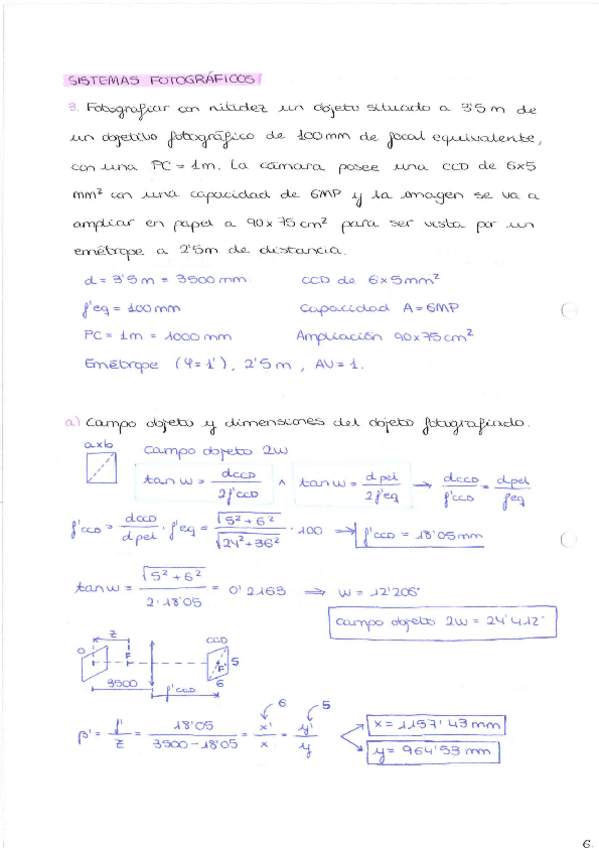 SISTEMAS FOTOGRÁFICOS
3. Fotografiar con nitidez un objeto situado a 3'5 m de
un objetivo fotográfico de 100 mm de focal equivalente,
con una PC = 1m. La cámara posee una CCD de 6x5
mm² con una capacidad de 6MP y la imagen se va a
ampliar en papel a 90 x 75 cm² para ser vista por un
emétrope a 2'5m de distancia.
d = 3'5 m = 3500 mm CCD de 6x5mm²
f'eq = 100 mm Capacidad A = 6MP
PC = 1m = 1000 mm Ampliación 90x75 cm²
Emétrope (φ = 1'), 2'5 m, AV = 1.
a) Campo objeto y dimensiones del objeto fotografiado.
axb Campo objeto 2w
tan w = dCCD / 2f'CCD ^ tan w = dpel / 2f'eq → dCCD / f'CCD = dpel / feq
f'CCD = dCCD / dpel · f'eq = √5² + 6² / √24² + 36² · 100 → f'CCD = 18'05 mm
tan w = √5² + 6² / 2 · 18'05 = 0'2163 ⇒ w = 12'206°
Campo objeto 2w = 24'412°
z CCD
O F F' 5
3500 f'CCD 6
6 5
β' = f' / z = 18'05 / 3500 - 18'05 = x' / x = y' / y
x = 1157'43 mm
y = 964'53 mm
6.